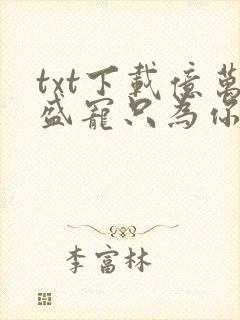 txt下載億萬
盛寵只為你
李富林